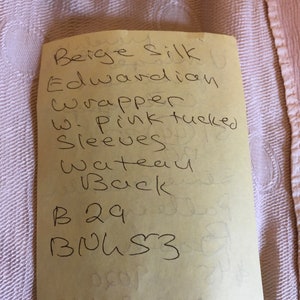 Beige Silk
Edwardian
wrapper
w. pink tucked
Sleeves
Wateau
Back
B 29